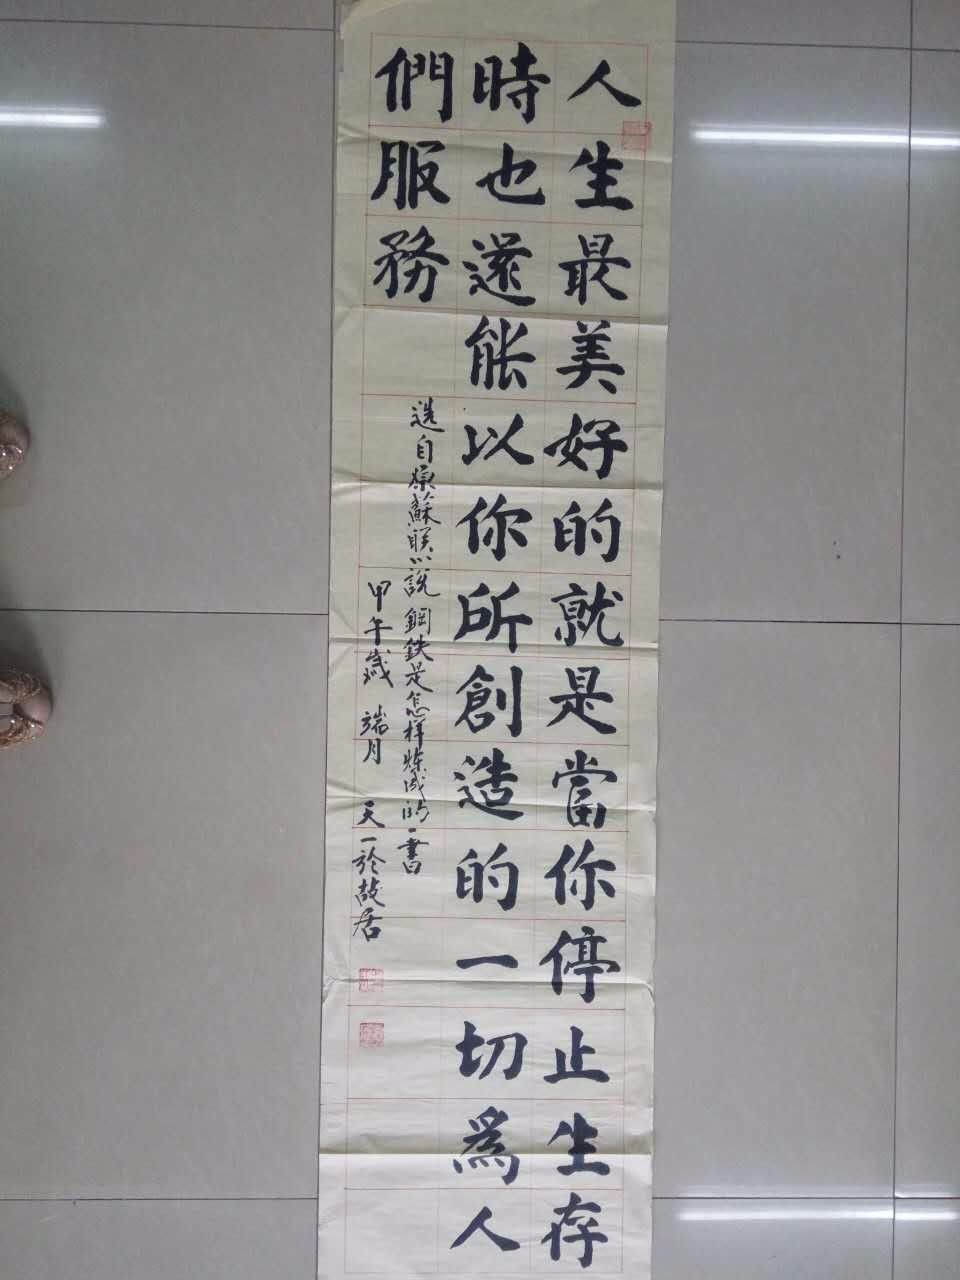 人生最美好的就是當你停止生存
時也還能以你所創造的一切爲人
們服務
选自原蘇联小說鋼鉄是怎样炼成的一書
甲午歲 端月 天一於故居